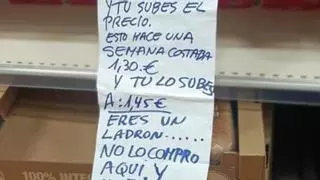 Y TU SUBES EL
PRECIO.
ESTO HACE UNA
SEMANA COSTABA
1,30.€
Y TU LO SUBES
A:1,45€
ERES UN
LADRON......
NO LO COMPRO
AQUI. Y
100% INTEG